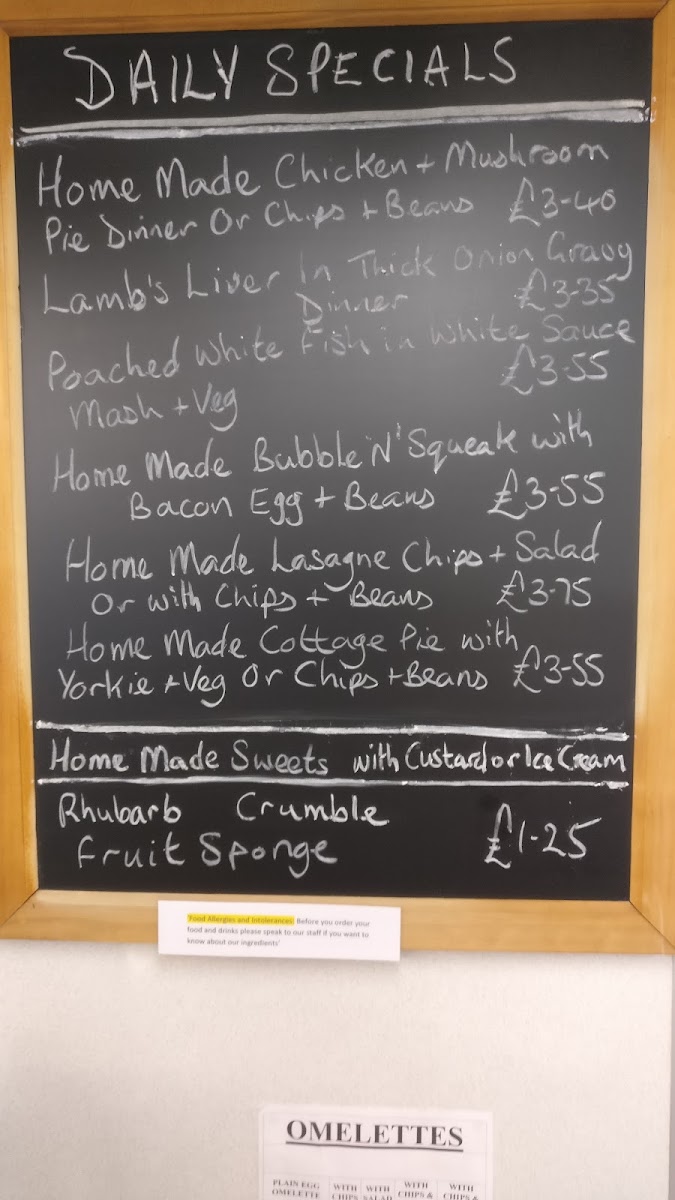 DAILY SPECIALS
Home Made Chicken + Mushroom
Pie Dinner Or Chips + Beans £3-40
Lamb's Liver In Thick Onion Gravy
Dinner £3-35
Poached White Fish in White Sauce
Mash + Veg £3-55
Home Made Bubble 'N' Squeak with
Bacon Egg + Beans £3-55
Home Made Lasagne Chips + Salad
Or with Chips + Beans £3-75
Home Made Cottage Pie with
Yorkie + Veg Or Chips + Beans £3-55
Home Made Sweets with Custard or Ice Cream
Rhubarb Crumble
Fruit Sponge £1-25
'Food Allergies and Intolerances: Before you order your
food and drinks please speak to our staff if you want to
know about our ingredients'
OMELETTES
PLAIN EGG WITH WITH WITH WITH
OMELETTE CHIPS SALAD CHIPS & CHIPS &